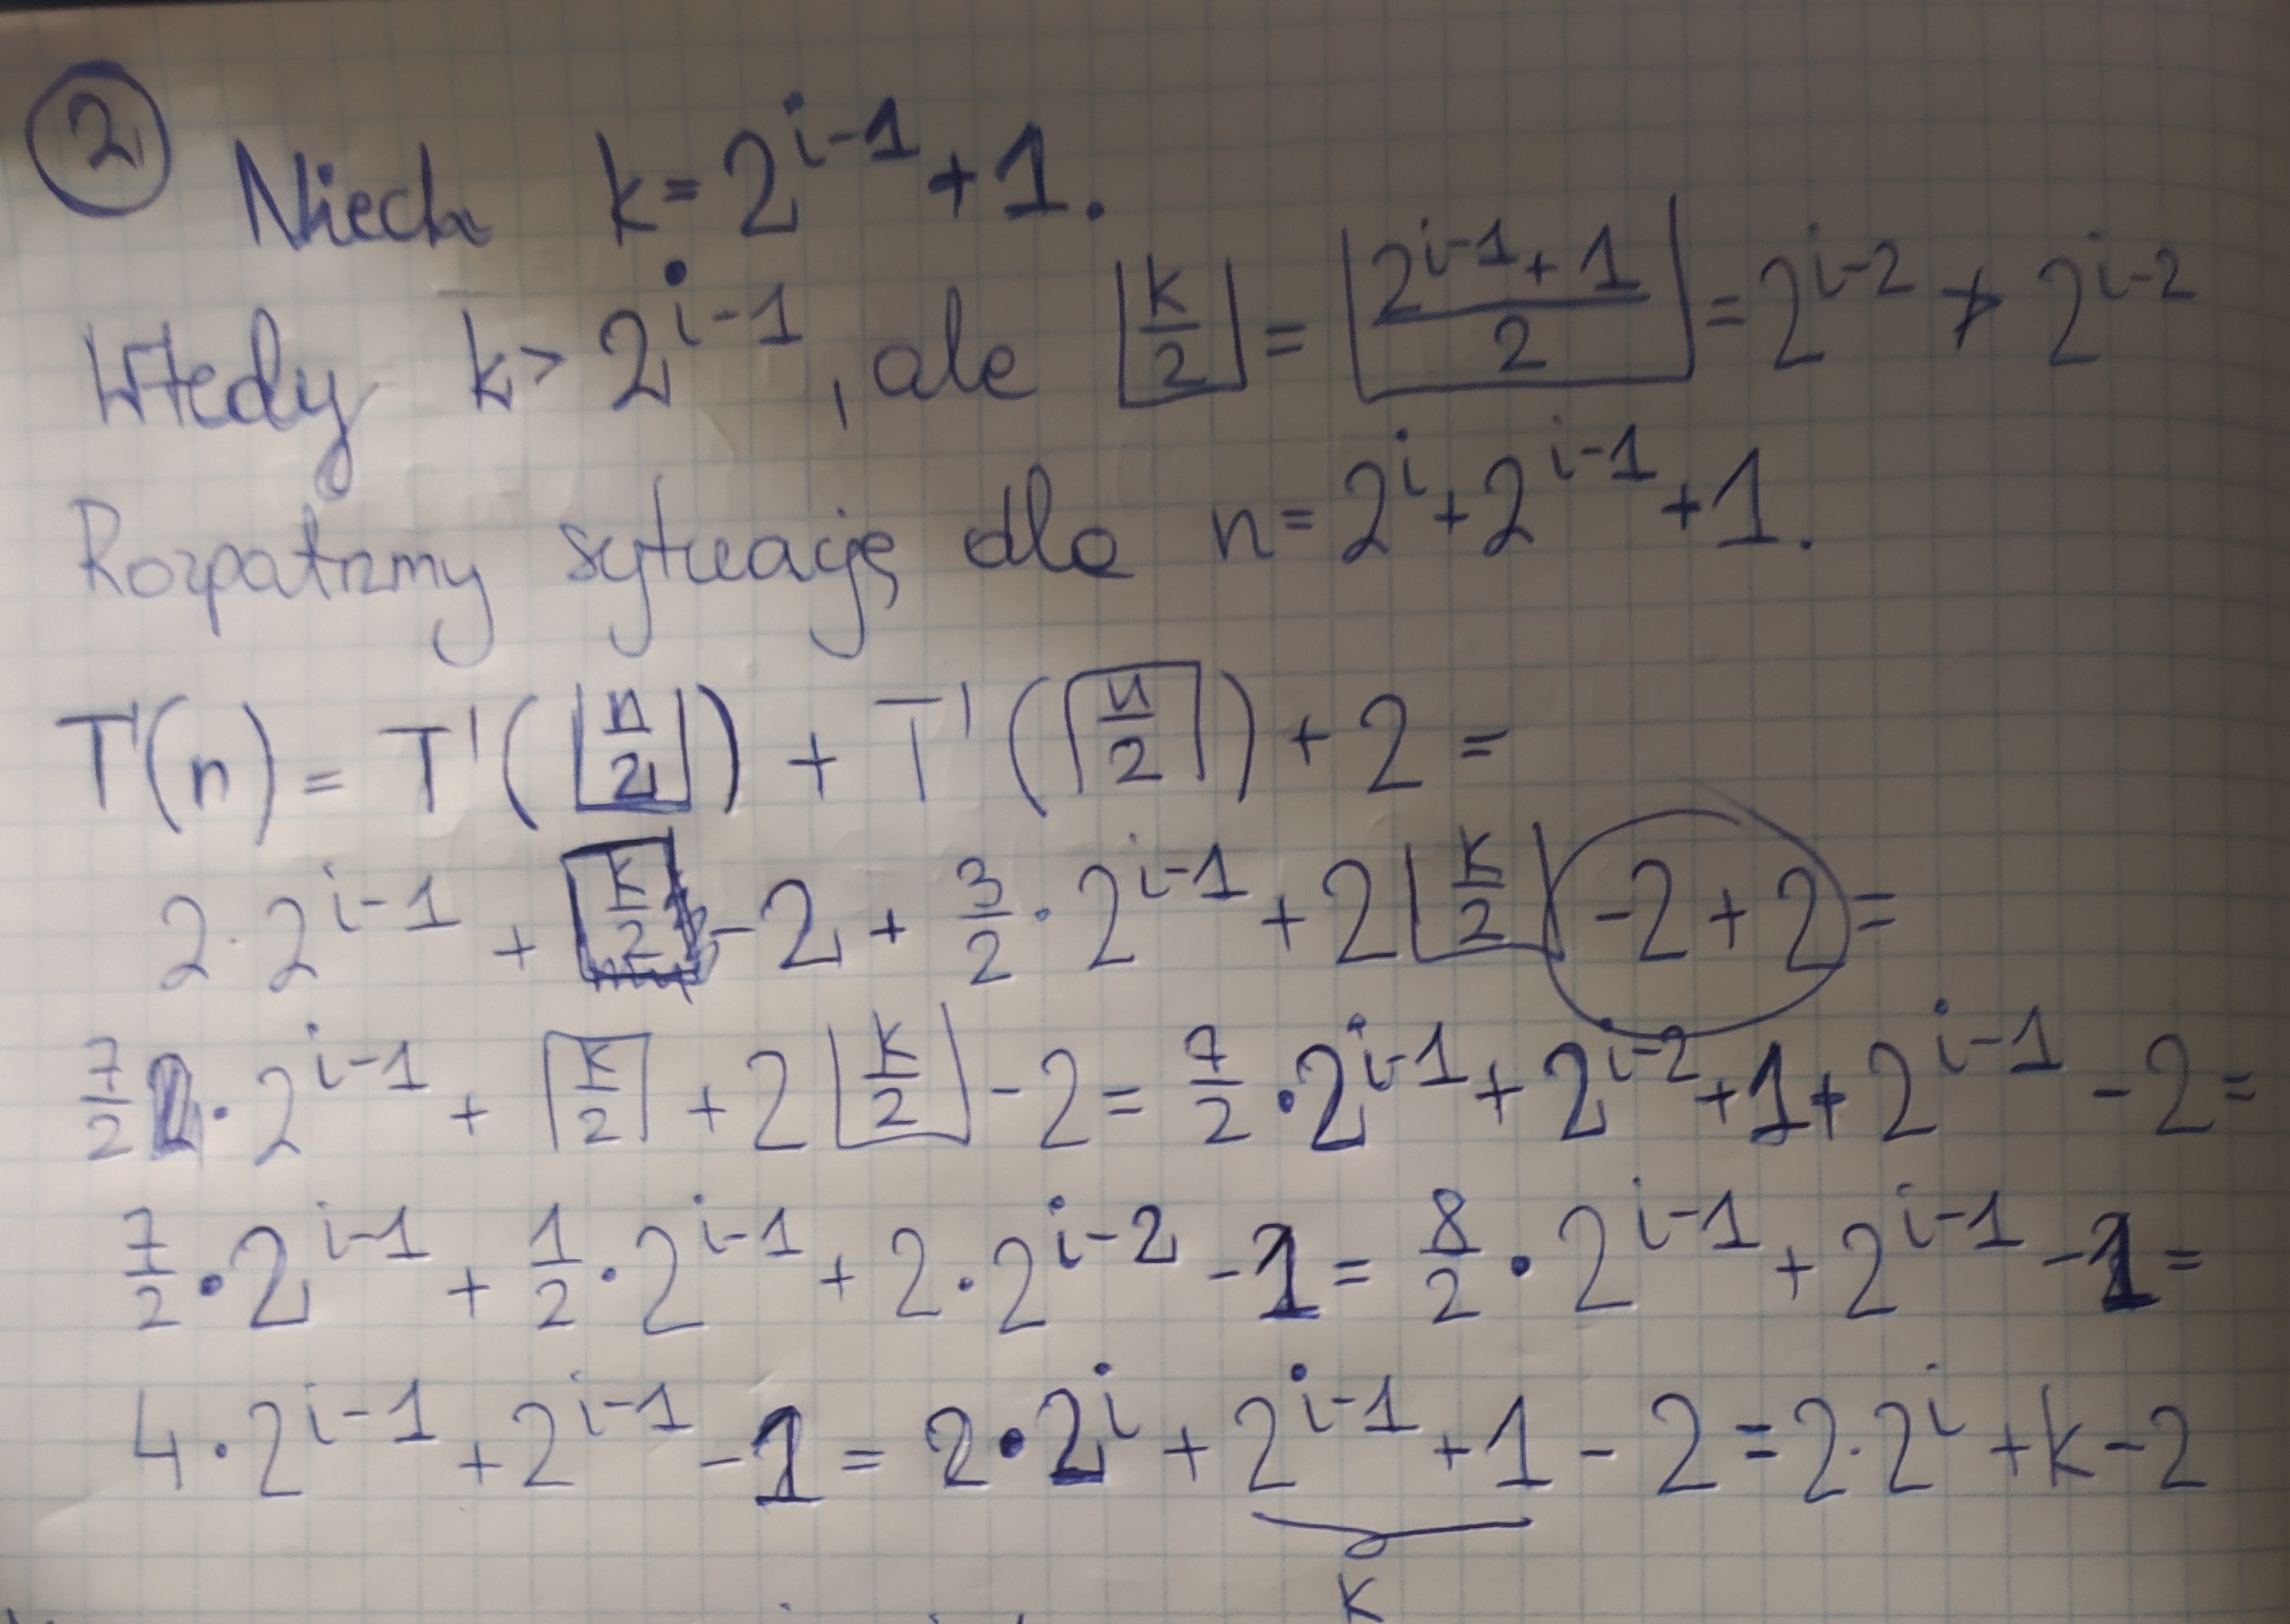 ② Niech k = 2^{i-1} + 1.
Wtedy k > 2^{i-1}, ale ⌊k/2⌋ = ⌊(2^{i-1} + 1)/2⌋ = 2^{i-2} ≯ 2^{i-2}
Rozpatrzmy sytuację dla n = 2^i + 2^{i-1} + 1.
T'(n) = T'(⌊n/2⌋) + T'(⌈n/2⌉) + 2 =
2 · 2^{i-1} + ⌈k/2⌉ - 2 + 3/2 · 2^{i-1} + 2⌊k/2⌋ - 2 + 2 =
7/2 · 2^{i-1} + ⌈k/2⌉ + 2⌊k/2⌋ - 2 = 7/2 · 2^{i-1} + 2^{i-2} + 1 + 2^{i-1} - 2 =
7/2 · 2^{i-1} + 1/2 · 2^{i-1} + 2 · 2^{i-2} - 1 = 8/2 · 2^{i-1} + 2^{i-1} - 1 =
4 · 2^{i-1} + 2^{i-1} - 1 = 2 · 2^i + 2^{i-1} + 1 - 2 = 2 · 2^i + k - 2
k